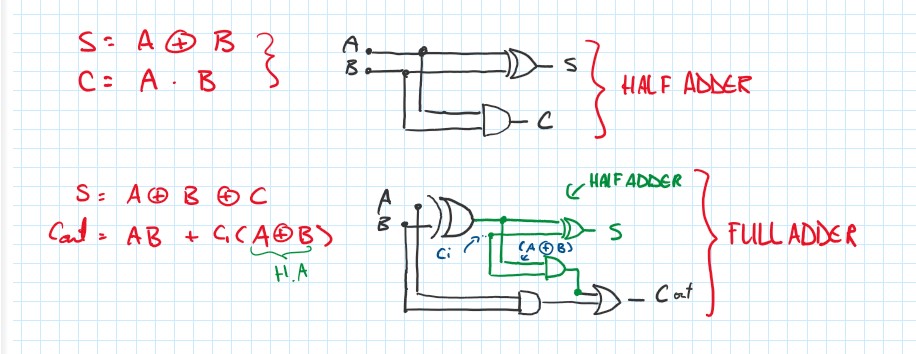 S = A ⊕ B
C = A · B
A
B
S
C
HALF ADDER
S = A ⊕ B ⊕ C
Cout = AB + Ci (A ⊕ B)
H.A
HALF ADDER
A
B
S
Ci
(A ⊕ B)
Cout
FULL ADDER